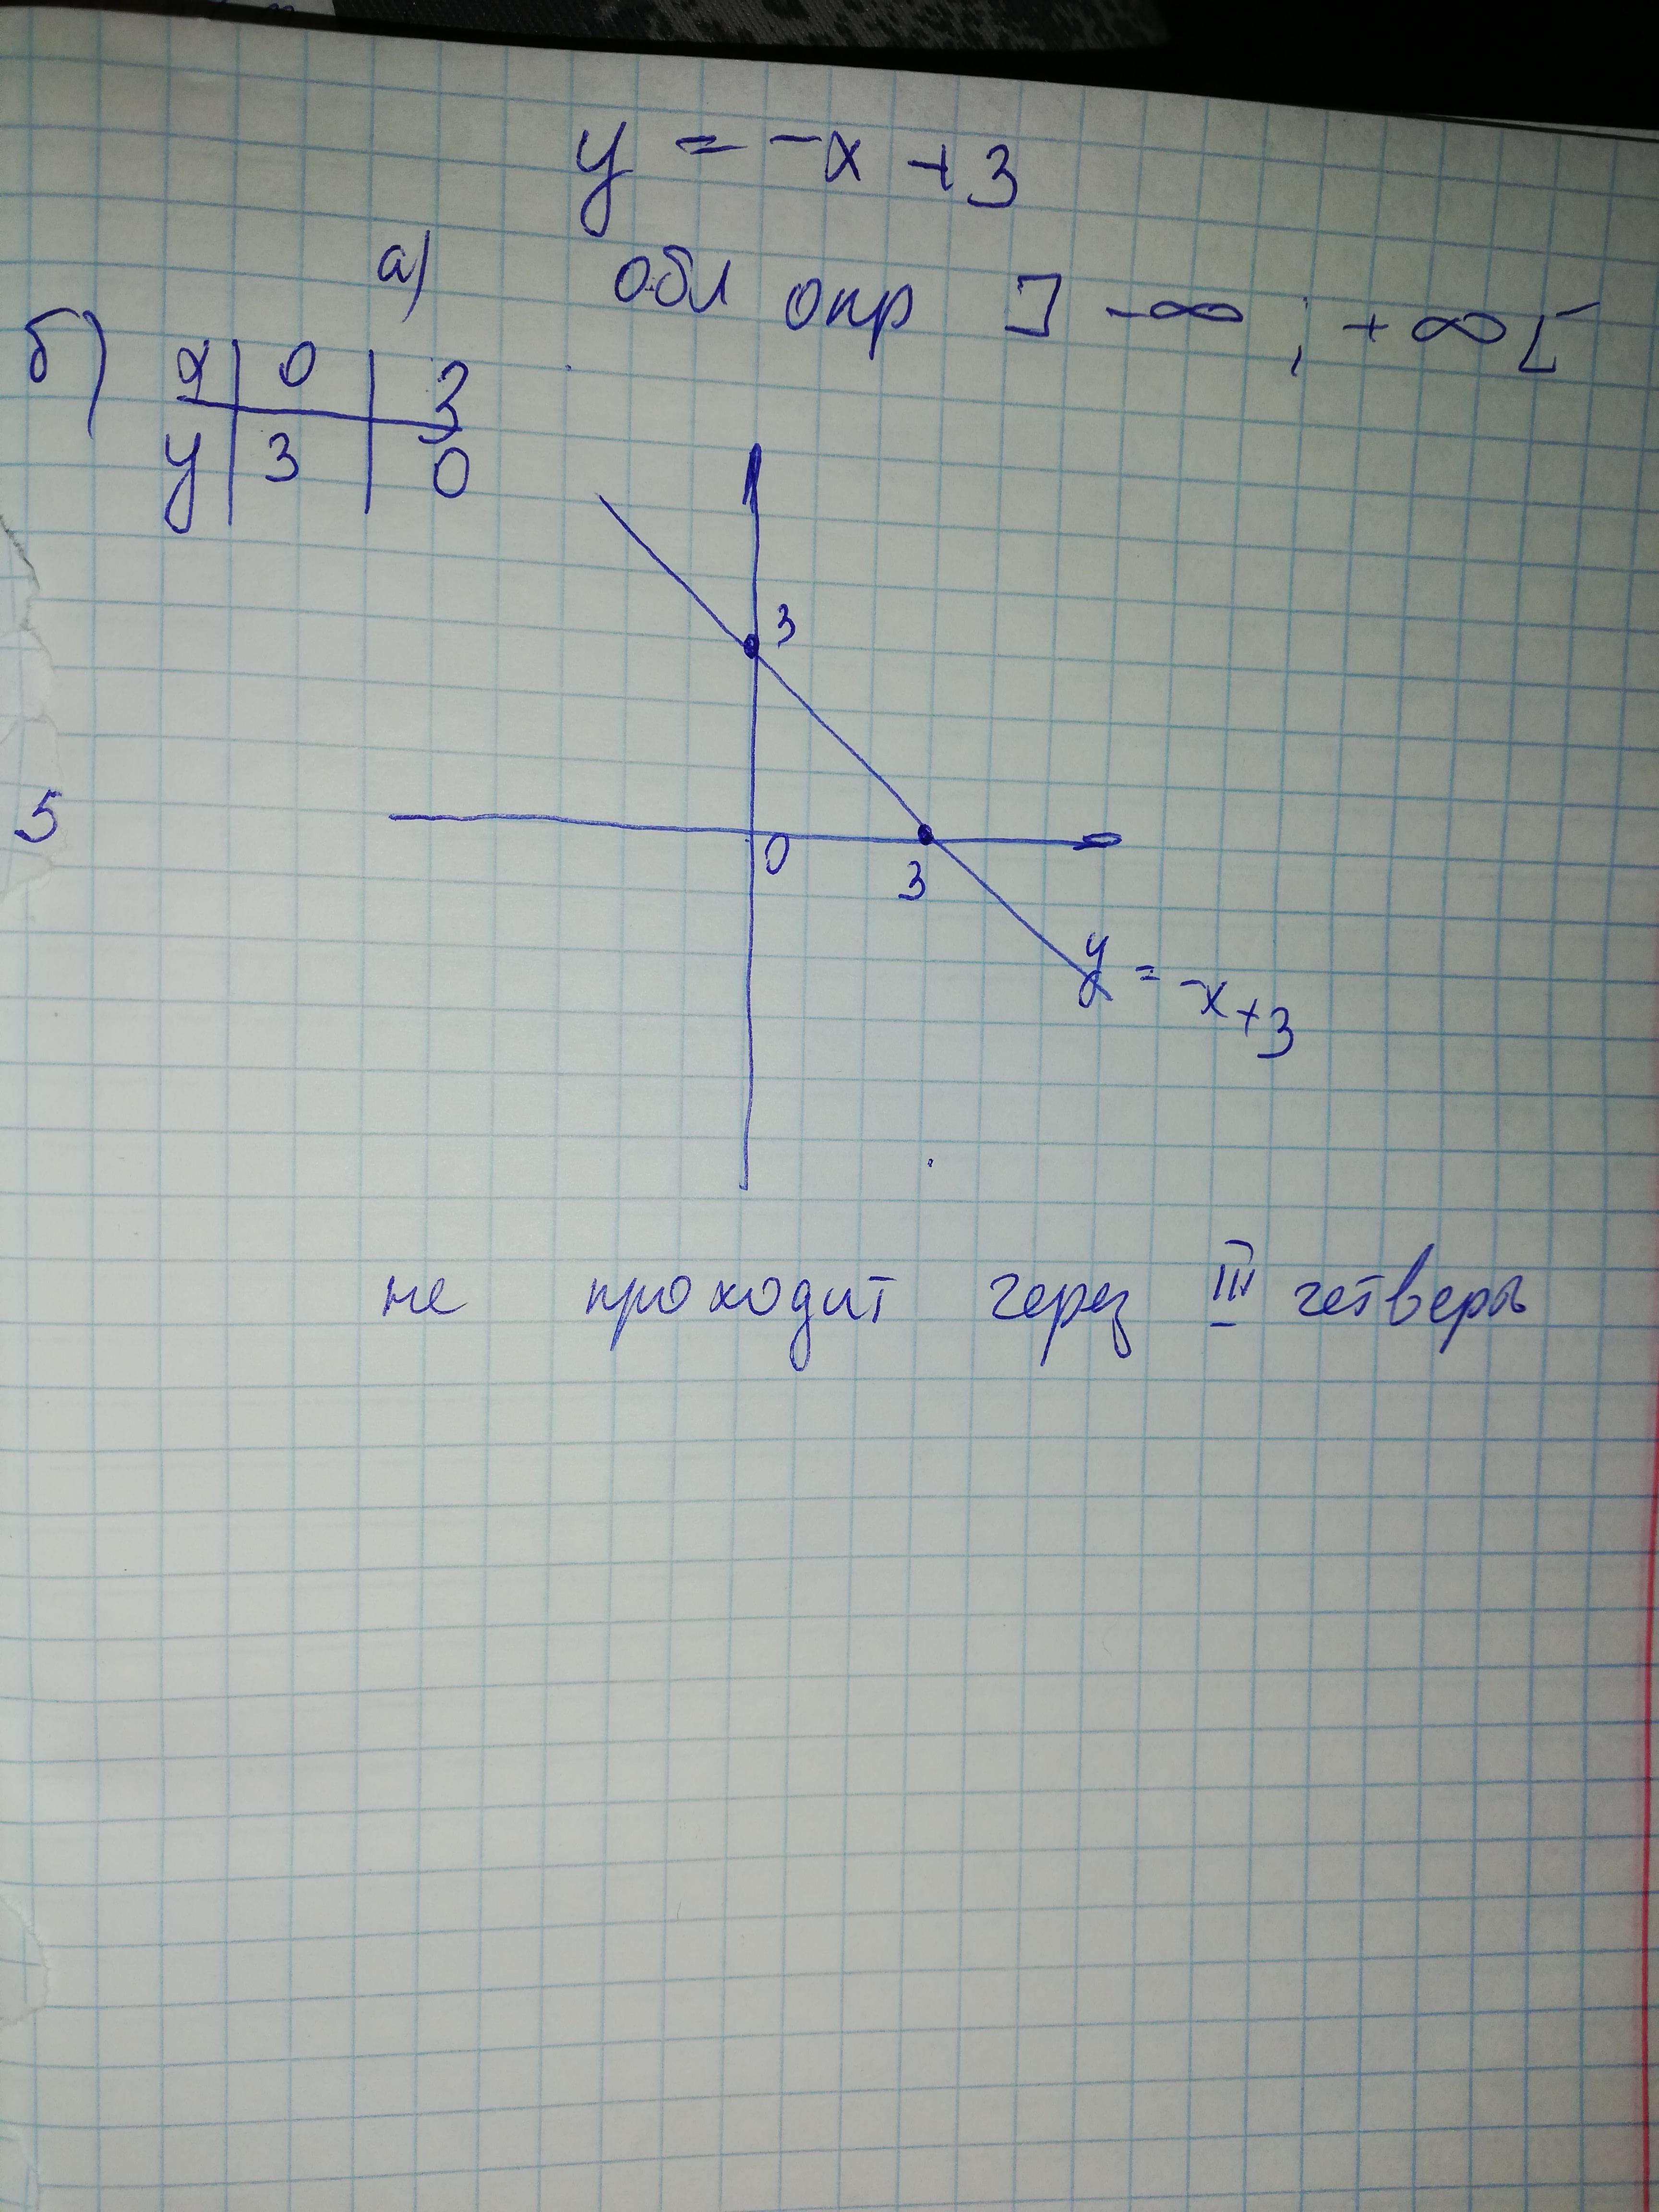 y = -x + 3
а) обл опр ]-∞ ; +∞[
б) x | 0 | 3
y | 3 | 0
3
5
0
3
y = -x + 3
не проходит через III четверь